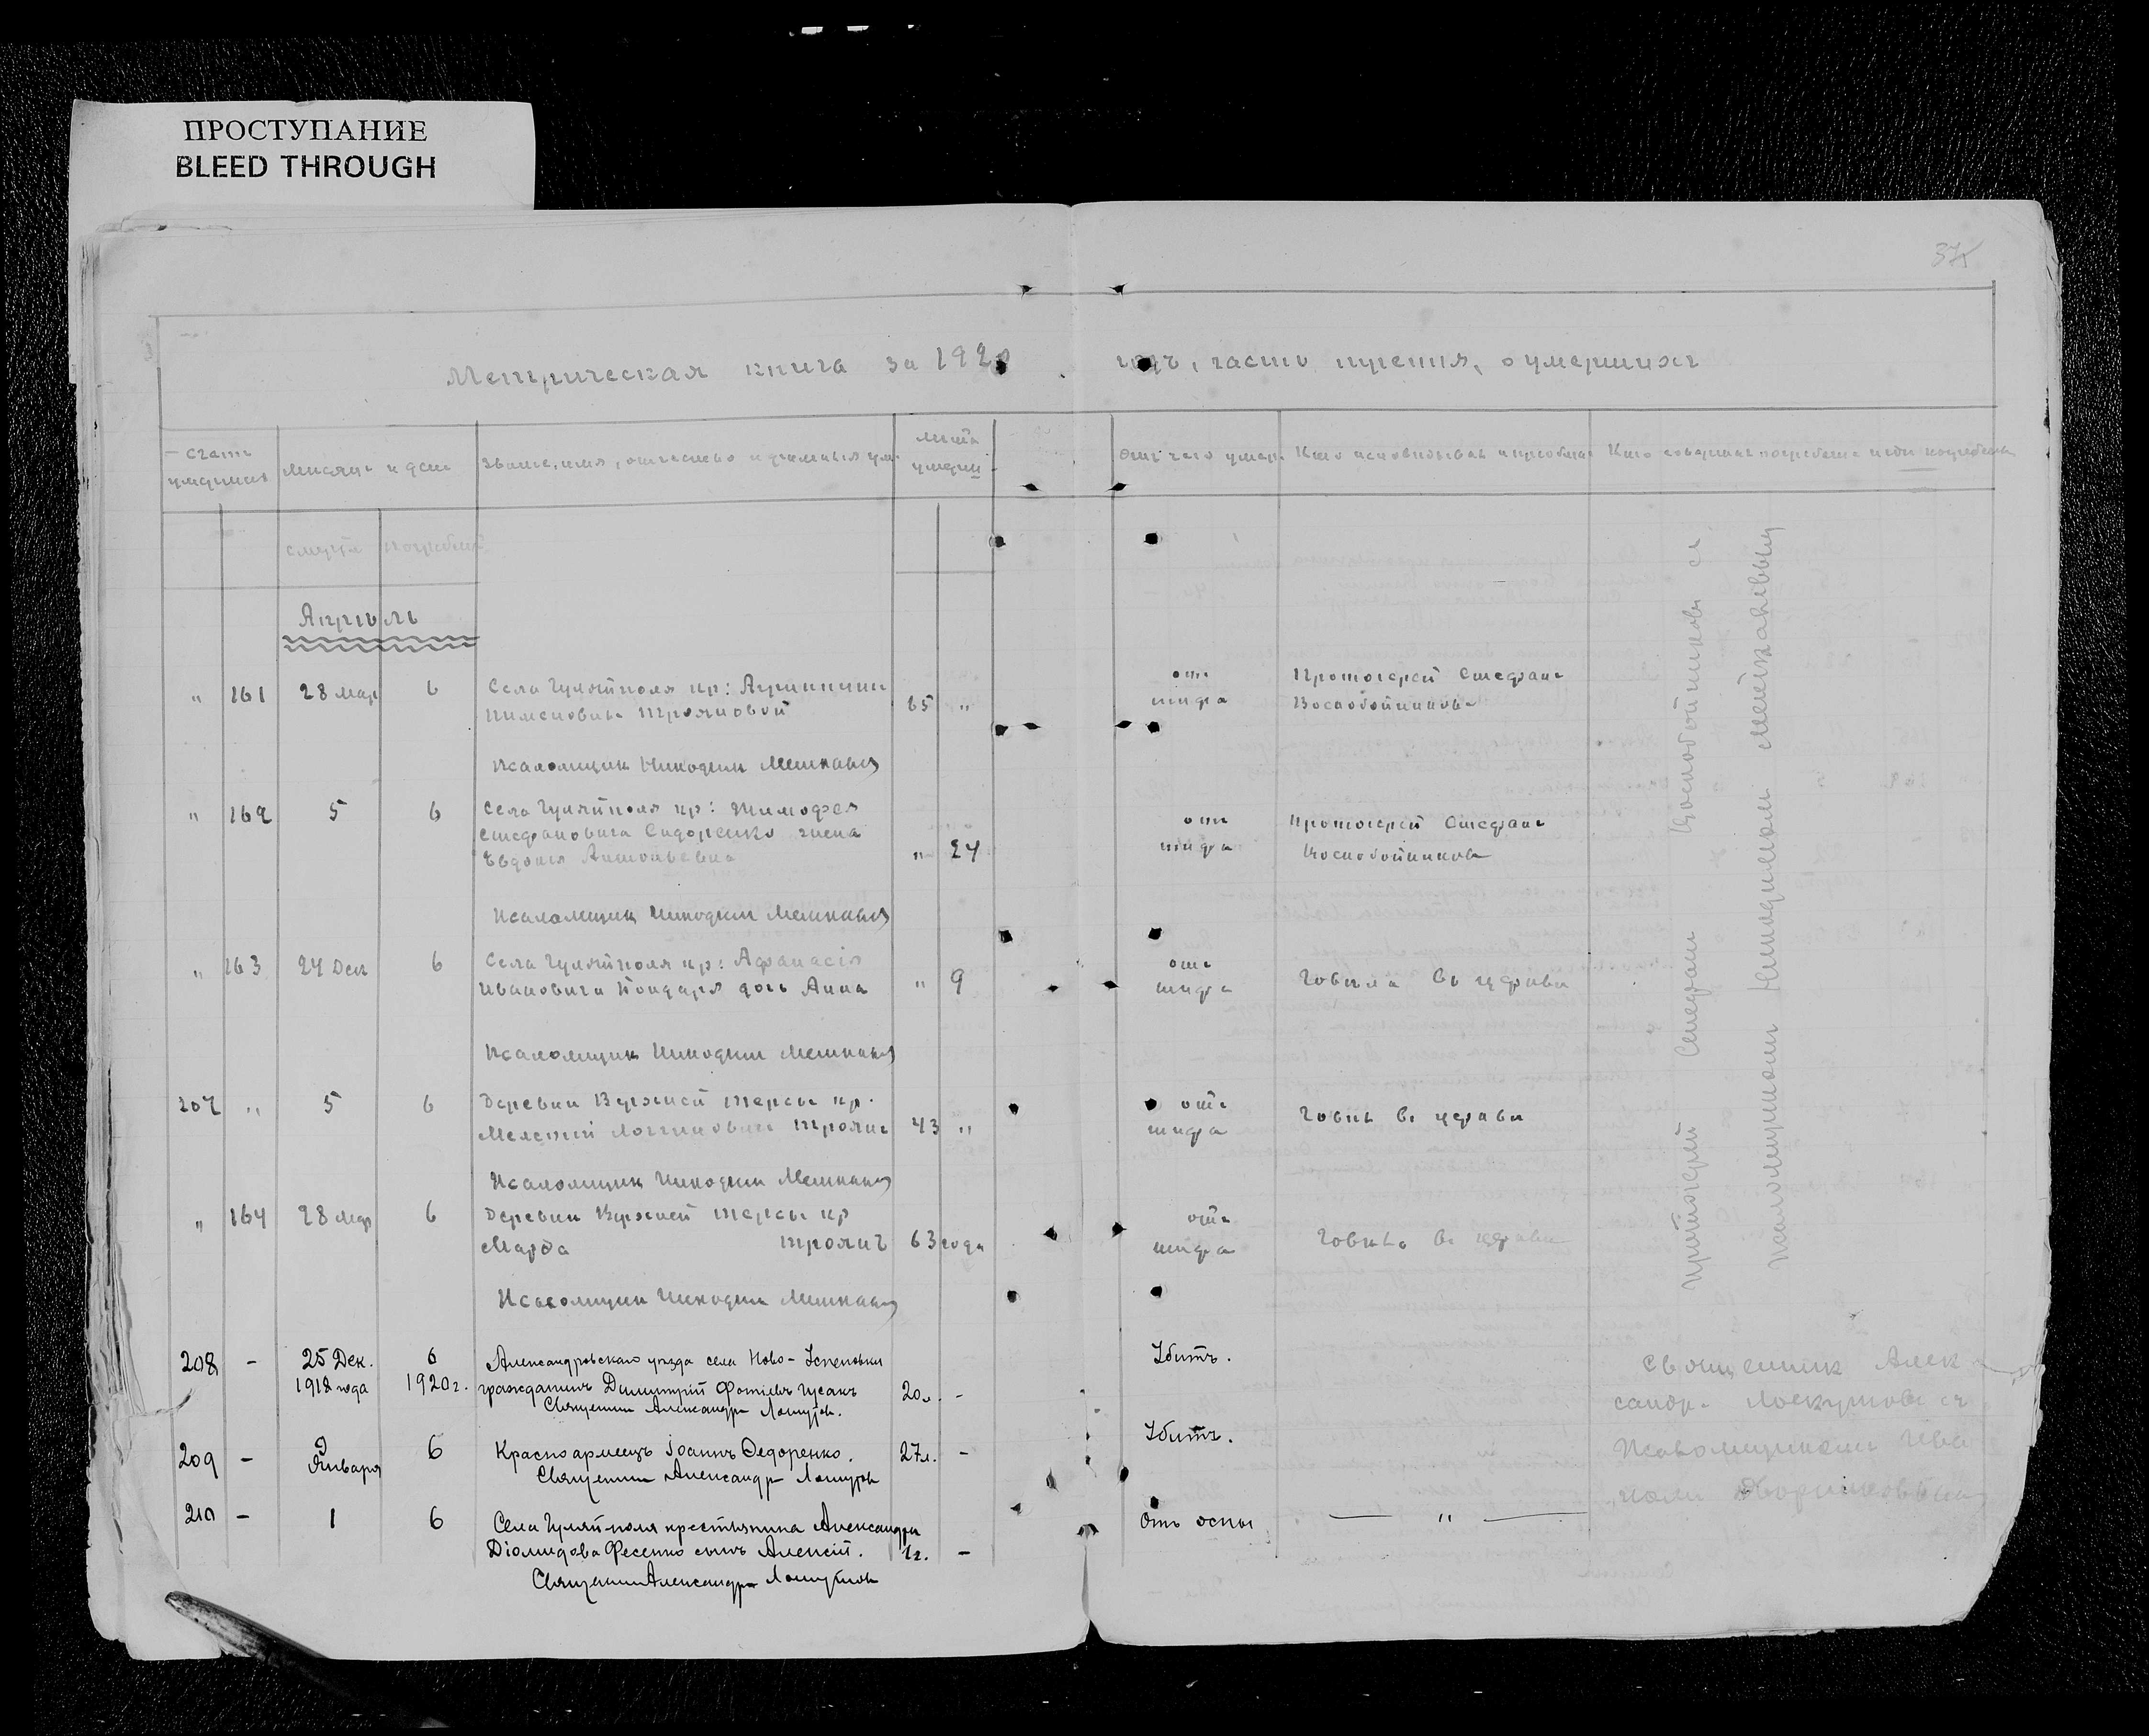 ПРОСТУПАНИЕ
BLEED THROUGH
37
Метрическая книга за 1920 годъ, часть третія, о умершихъ
Счетъ умершихъ
Мѣсяцъ и день
Званіе, имя, отчество и фамилія умер.
Лѣта умерш
Отъ чего умеръ
Кто исповѣдывалъ и пріобщ.
Кто совершалъ погребеніе и гдѣ погребены
смерти
погребен.
Апрѣль
" 161 28 мар 6
Села Гуляйполя кр: Агриппины
Пименовны Трояновой
65 "
отъ
тифа
Протоіерей Стефанъ
Воскобойниковъ
Псаломщик Никодим Мешкавы
" 162 5 6
Села Гуляйполя кр: Тимофея
Стефановича Сидоренко жена
Евдокія Антоньевна
" 24
отъ
тифа
Протоіерей Стефанъ
Воскобойниковъ
Псаломщик Никодим Мешкавы
" 163 24 Дек 6
Села Гуляйполя кр: Афанасія
Ивановича Бондаря дочь Анна
" 9
отъ
тифа
Говѣла въ церкви
Псаломщик Никодим Мешкавы
207 " 5 6
Деревни Верхней Терсы кр.
Мелетій Логгиновичъ Троянъ
43 "
отъ
тифа
Говѣлъ въ церкви
Псаломщик Никодим Мешкавы
" 164 28 мар 6
Деревни Верхней Терсы кр
Марфа Троянъ
63 года
отъ
тифа
Говѣла въ церкви
Псаломщик Никодим Мешкавы
Протоіерей Стефанъ Воскобойниковъ съ
псаломщикомъ Никодимомъ
208 - 25 Дек. 1918 года 6 1920 г.
Александровскаго уѣзда села Ново-Успеновки
гражданинъ Димитрій Фотіевъ Гусакъ
20 л. -
Убитъ.
Священник Александръ Лоскутовъ.
209 - 9 Января 6
Красноармеецъ Іоаннъ Федоренко.
27 л. -
Убитъ.
Священник Александръ Лоскутовъ
210 - 1 6
Села Гуляйполя крестьянина Александра
Діомидова Фесенко сынъ Алексій.
1 г. -
Отъ оспы
— " —
Священник Александръ Лоскутовъ
Священник Алек-
сандръ Лоскутовъ съ
псаломщикомъ